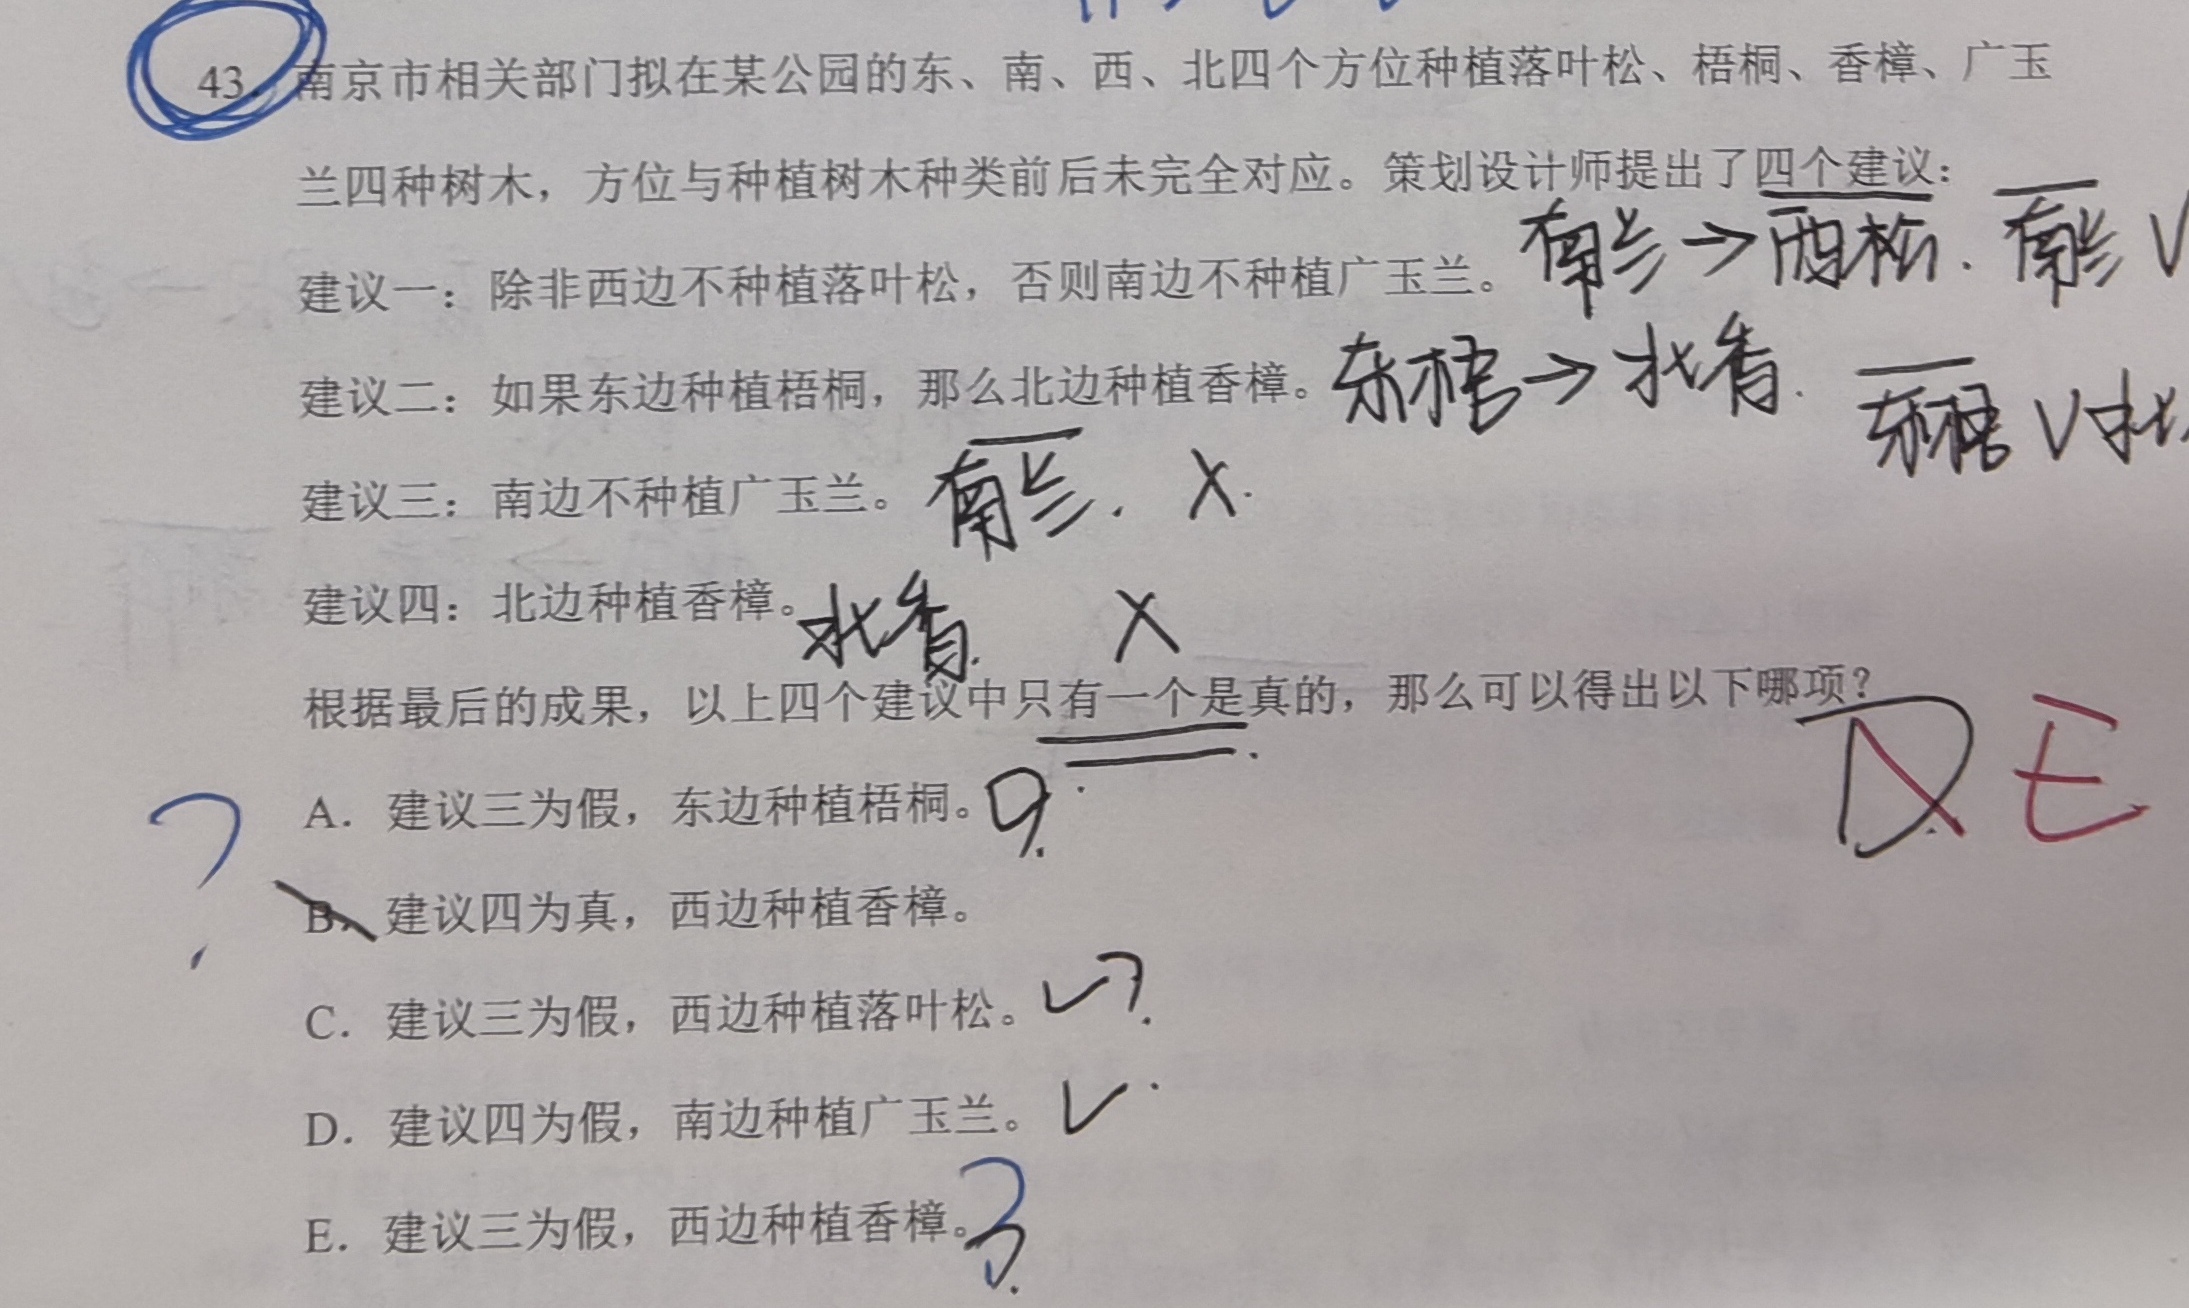 43. 南京市相关部门拟在某公园的东、南、西、北四个方位种植落叶松、梧桐、香樟、广玉
兰四种树木，方位与种植树木种类前后未完全对应。策划设计师提出了四个建议：
建议一：除非西边不种植落叶松，否则南边不种植广玉兰。 南兰→西松. 南兰∨
建议二：如果东边种植梧桐，那么北边种植香樟。 东梧→北香. 东梧∨北
建议三：南边不种植广玉兰。 南兰. X.
建议四：北边种植香樟。 北香. X
根据最后的成果，以上四个建议中只有一个是真的，那么可以得出以下哪项？
D E
A. 建议三为假，东边种植梧桐。 ?
?
B. 建议四为真，西边种植香樟。
C. 建议三为假，西边种植落叶松。 ✓?
D. 建议四为假，南边种植广玉兰。 ✓
E. 建议三为假，西边种植香樟。 ?